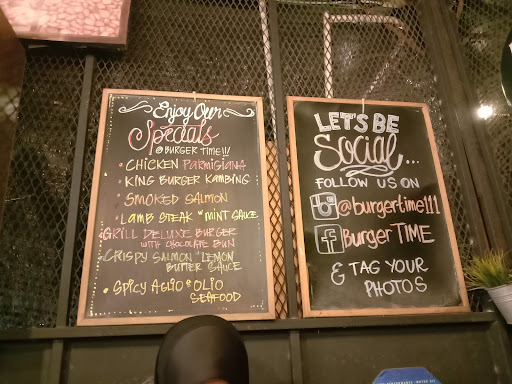 Enjoy Our
Specials
@ BURGER TIME!!!
• CHICKEN PARMIGIANA
• KING BURGER KAMBING
• SMOKED SALMON
• LAMB STEAK W MINT SAUCE
• GRILL DELUXE BURGER
WITH CHOCOLATE BUN
• CRISPY SALMON W LEMON
BUTTER SAUCE
• SPICY AGLIO & OLIO
SEAFOOD
LET'S BE
Social...
FOLLOW US ON
@burgertime111
BurgerTIME
& TAG YOUR
PHOTOS